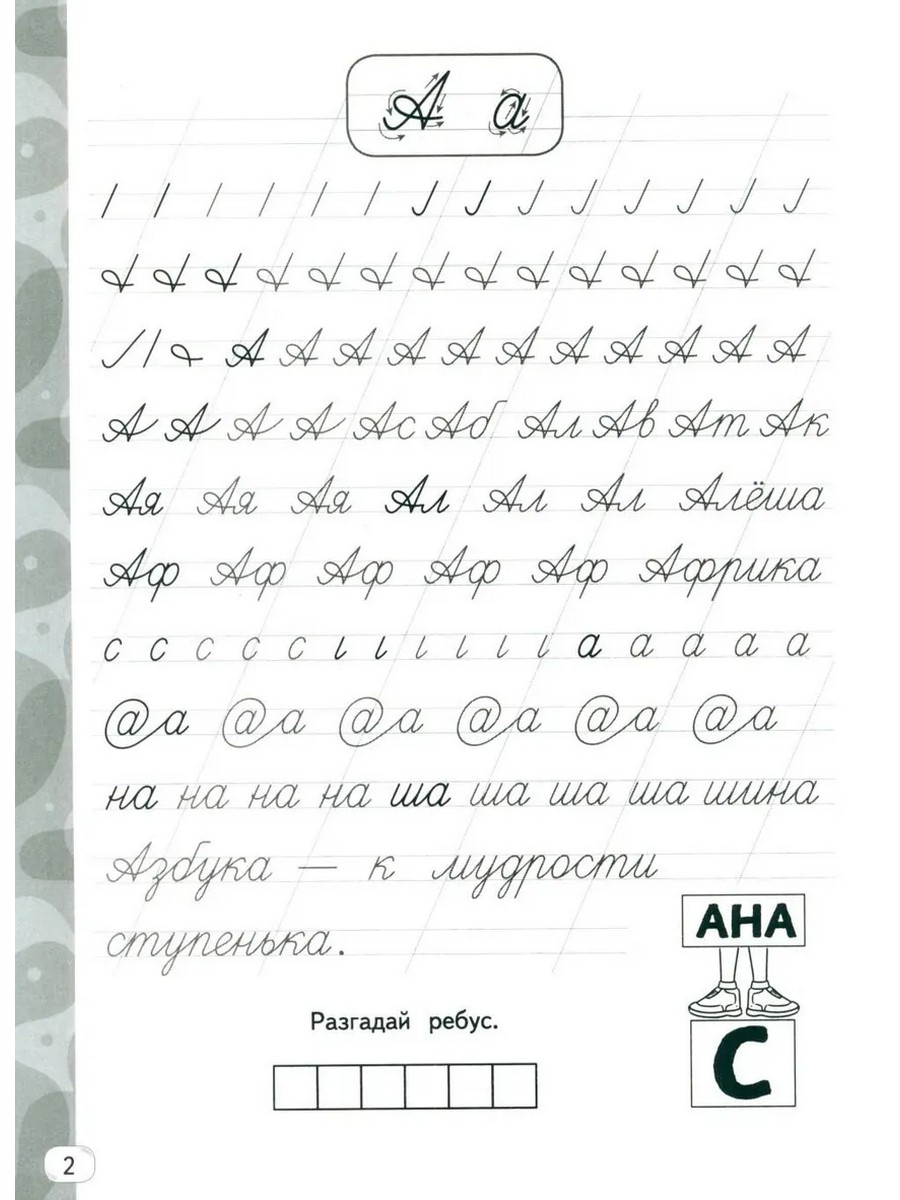 А а
А А А А А А А А А А А
А А А А Ас Аб Ал Ав Ат Ак
Ая Ая Ая Ал Ал Ал Алёша
Аф Аф Аф Аф Аф Африка
с с с с с ι ι ι ι ι ι а а а а а
@а @а @а @а @а @а
на на на на ша ша ша ша шина
Азбука — к мудрости
ступенька.
АНА
С
Разгадай ребус.
2